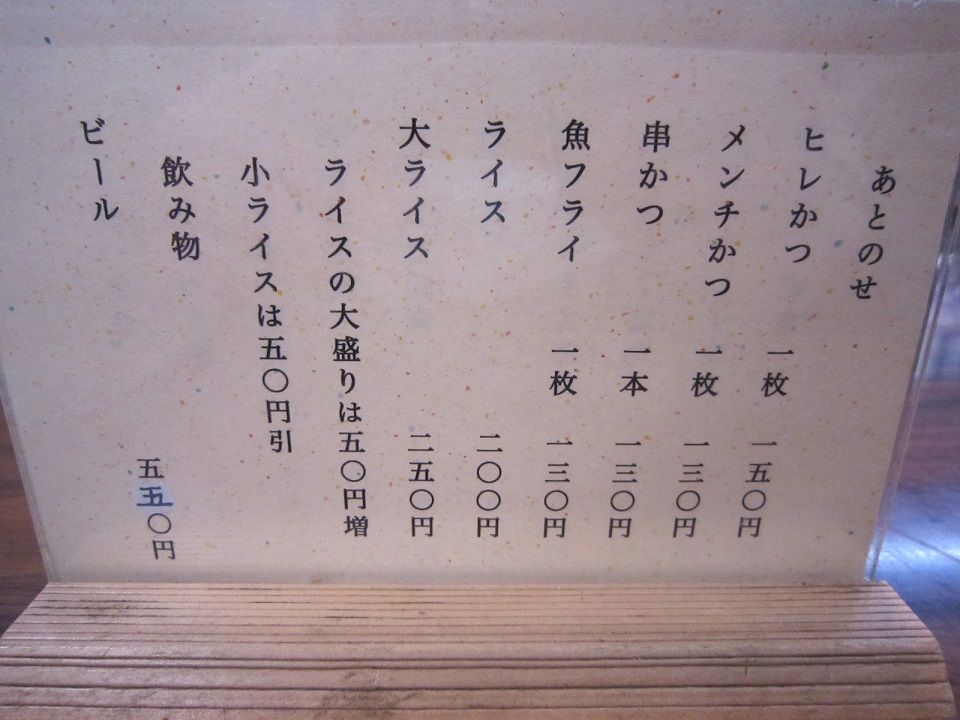 あとのせ
ヒレかつ 一枚 一五〇円
メンチかつ 一枚 一三〇円
串かつ 一本 一三〇円
魚フライ 一枚 一三〇円
ライス 二〇〇円
大ライス 二五〇円
ライスの大盛りは五〇円増
小ライスは五〇円引
飲み物
ビール 五五〇円